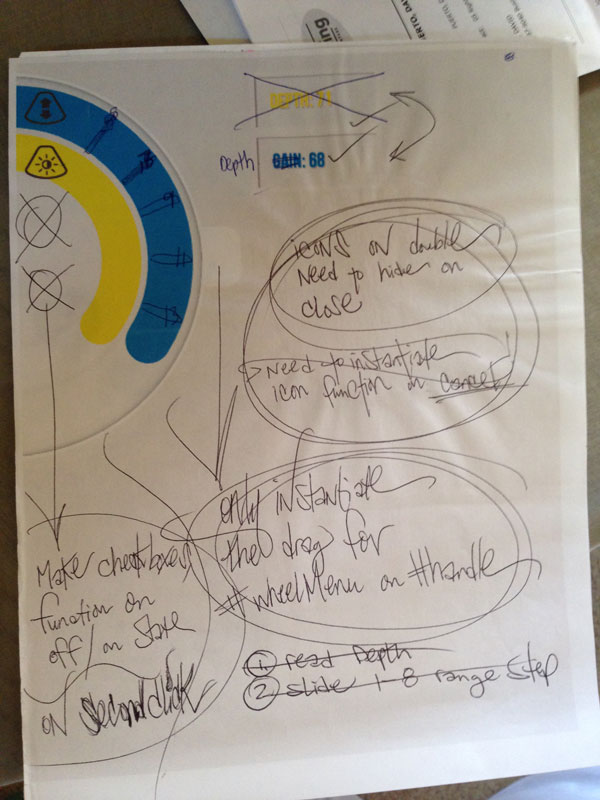 DEPTH: 77
Depth GAIN: 68
icons on double
need to hide on
close
> need to instantiate
icon function on cancel
only instantiate
the drag for
#wheelMenu on #handle
Make checkboxes
function on
off/on state
on second click
① read Depth
② slide 1-8 range step